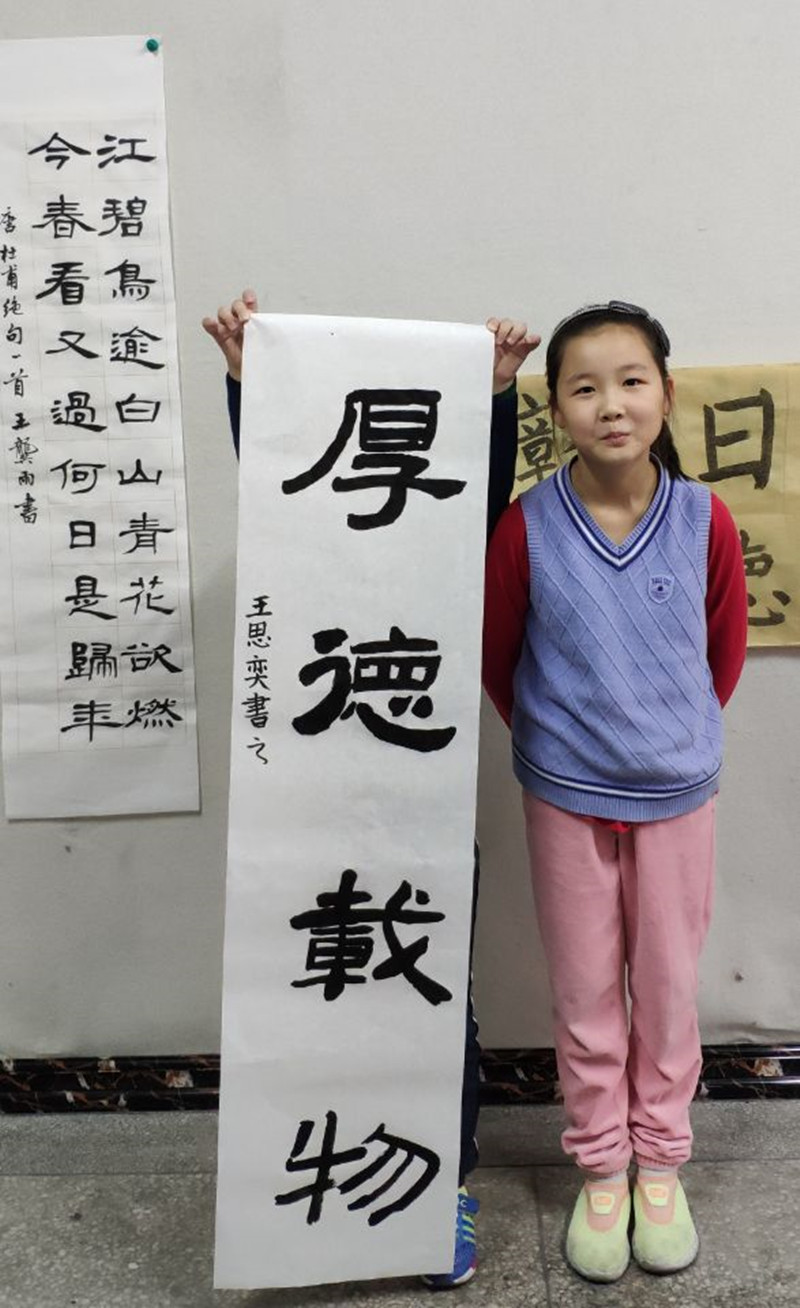 江碧鳥逾白山青花欲燃
今春看又過何日是歸年
唐杜甫絶句一首王龑雨書
厚德載物
王思奕書之
日
德